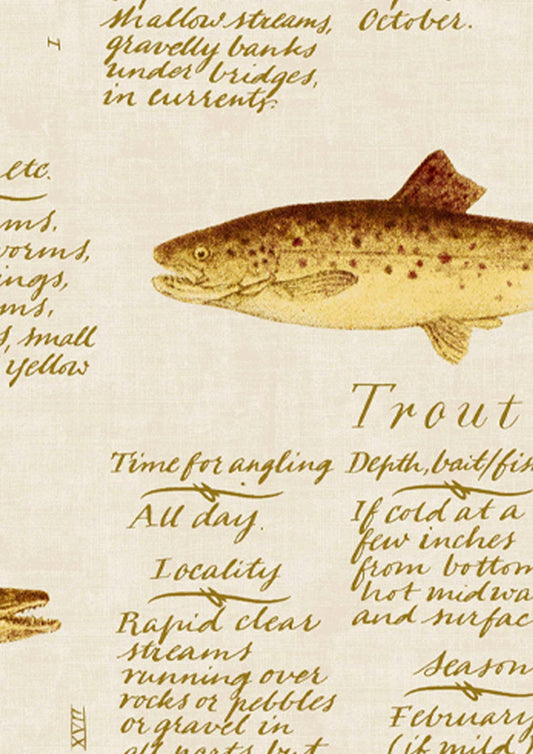 shallow streams,
gravelly banks
under bridges,
in currents.
October.
I
etc.
small
yellow
Trout
Time for angling
All day.
Locality
Rapid clear
streams
running over
rocks or pebbles
or gravel in
all parts but
Depth, bait/
If cold at a
few inches
from bottom
hot
and
Season
February
(if mild)